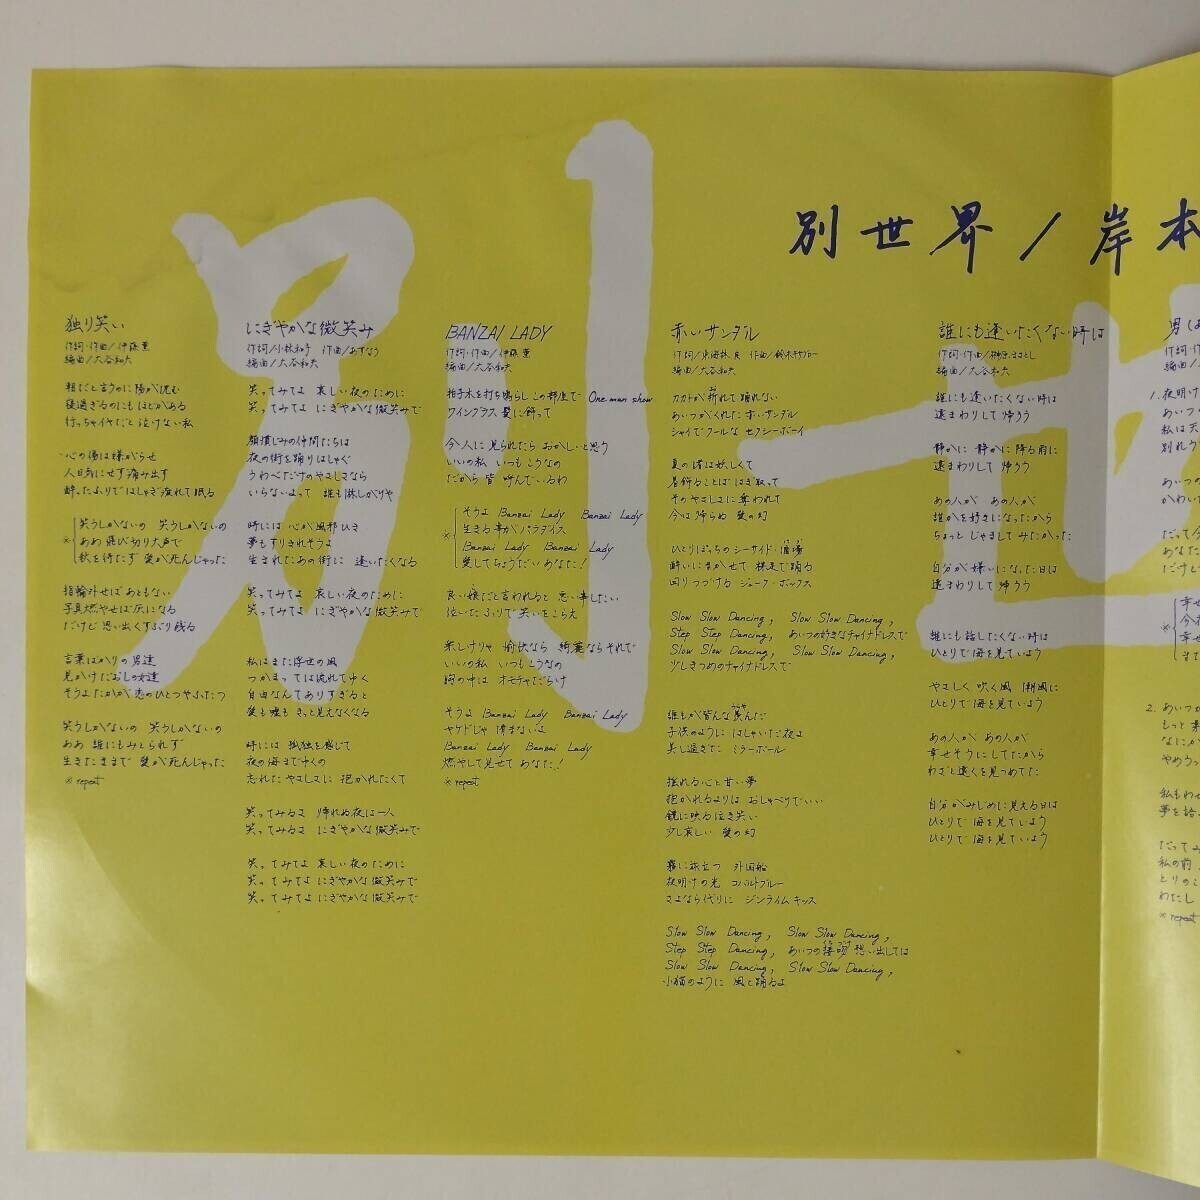 別世界/岸本
独り笑い
作詞・作曲/伊藤薫
編曲/大谷和夫
朝だと言うのに陽が沈む
寝過ぎるのにもほどがある
行っちゃイヤだと泣けない私
心の傷は様がらせ
人目気にせず痛み出す
酔ったふりではしゃぎ疲れて眠る
※ 笑うしかないの 笑うしかないの
ああ 飛び切り大声で
秋を待たず 愛が死んじゃった
指輪外せばあともない
写真燃やせば灰になる
だけど 思い出くすぶり残る
言葉ばかりの男達
見かけだおしの女達
そうよたかが 恋のひとつやふたつ
笑うしかないの 笑うしかないの
ああ 誰にもみとられず
生きたままで 愛が死んじゃった
※ repeat
にぎやかな微笑み
作詞/小林和子 作曲/あすなろ
編曲/大谷和夫
笑ってみてよ 哀しい夜のために
笑ってみてよ にぎやかな微笑みで
顔慣じみの仲間たちは
夜の街を踊りはしゃぐ
うわべだけのやさしさなら
いらないよって 誰も淋しがりや
時には 心が風邪ひき
夢もすりきれそうよ
生まれたあの街に 逢いたくなる
笑ってみてよ 哀しい夜のために
笑ってみてよ にぎやかな微笑みで
私はまた浮世の風
つかまっては流れてゆく
自由なんてありすぎると
愛も嘘も きっと見えなくなる
時には 孤独を感じて
夜の海までゆくの
忘れたやさしさに 抱かれたくて
笑ってみるよ 帰れぬ夜は一人
笑ってみるよ にぎやかな微笑みで
笑ってみてよ 哀しい夜のために
笑ってみてよ にぎやかな微笑みで
笑ってみてよ にぎやかな微笑みで
BANZAI LADY
作詞・作曲/伊藤薫
編曲/大谷和夫
拍子木を打ち鳴らし この部屋で One man show
ワイングラス 髪に飾って
今 人に見られたら おかしいと思う
いいの私 いつもこうなの
だから 皆 呼んでいるわ
※ そうよ Banzai Lady Banzai Lady
生きる事がパラダイス
Banzai Lady Banzai Lady
愛してちょうだい あなた!
良い嫁だと言われると 思い率したい
泣いたふりで笑いをこらえ
楽しけりゃ 愉快なら 綺麗ならそれで
いいの私 いつもこうなの
胸の中は オモチャだらけ
そうよ Banzai Lady Banzai Lady
ヤケドじゃ 済まないよ
Banzai Lady Banzai Lady
燃やして見せて あなた!
※ repeat
赤いサンダル
作詞/東海林良 作曲/鈴木キサブロー
編曲/大谷和夫
カカトが折れて踊れない
あいつがくれた 赤いサンダル
シャイでクールな セクシーボーイ
夏の渚は妖しくて
着飾ることば はぎ取って
そのやさしさに奪われて
今は帰らぬ 愛の幻
ひとりぼっちのシーサイド・酒場
酔いにまかせて 裸足で踊る
回りつづける ジューク・ボックス
Slow Slow Dancing, Slow Slow Dancing,
Step Step Dancing, あいつの好きなチャイナドレスで
Slow Slow Dancing, Slow Slow Dancing,
少しきつめのチャイナドレスで
誰もが皆んな羨んだ
子供のように はしゃいだ夜よ
美し過ぎた ミラーボール
揺れる心と甘い夢
抱かれるよりは おしゃべりでいい
鏡に映る泣き笑い
少し哀しい 愛の幻
霧に旅立つ 外国船
夜明けの光 コバルトブルー
さよなら代りに ジンライムキッス
Slow Slow Dancing, Slow Slow Dancing,
Step Step Dancing, あいつの 想い出しては
Slow Slow Dancing, Slow Slow Dancing,
小猫のように 風と踊るよ
誰にも逢いたくない時は
作詞・作曲/榊原まさとし
編曲/大谷和夫
誰にも逢いたくない時は
遠まわりして 帰ろう
静かに 静かに 降る雨に
遠まわりして 帰ろう
あの人が あの人が
誰かを好きになったから
ちょっと じゃまして みたかった
自分が嫌いになった日は
遠まわりして 帰ろう
誰にも話したくない時は
ひとりで海を見ていよう
やさしく 吹く風 潮風に
ひとりで 海を見ていよう
あの人が あの人が
幸せそうにしてたから
わざと遠くを見つめてた
自分がみじめに見える日は
ひとりで 海を見ていよう
ひとりで 海を見ていよう
男は
作詞・作
編曲/大
1. 夜明け
あいつ
私は天
別れう
あいつの
かわい
だって今
あなた
だけし
※ 幸せ
今夜
幸せ
2. あいつか
もっと素
なにか
やめよう
私もわ
夢を語
だってみ
私の前
とりのこ
わたし
※ repeat
別世